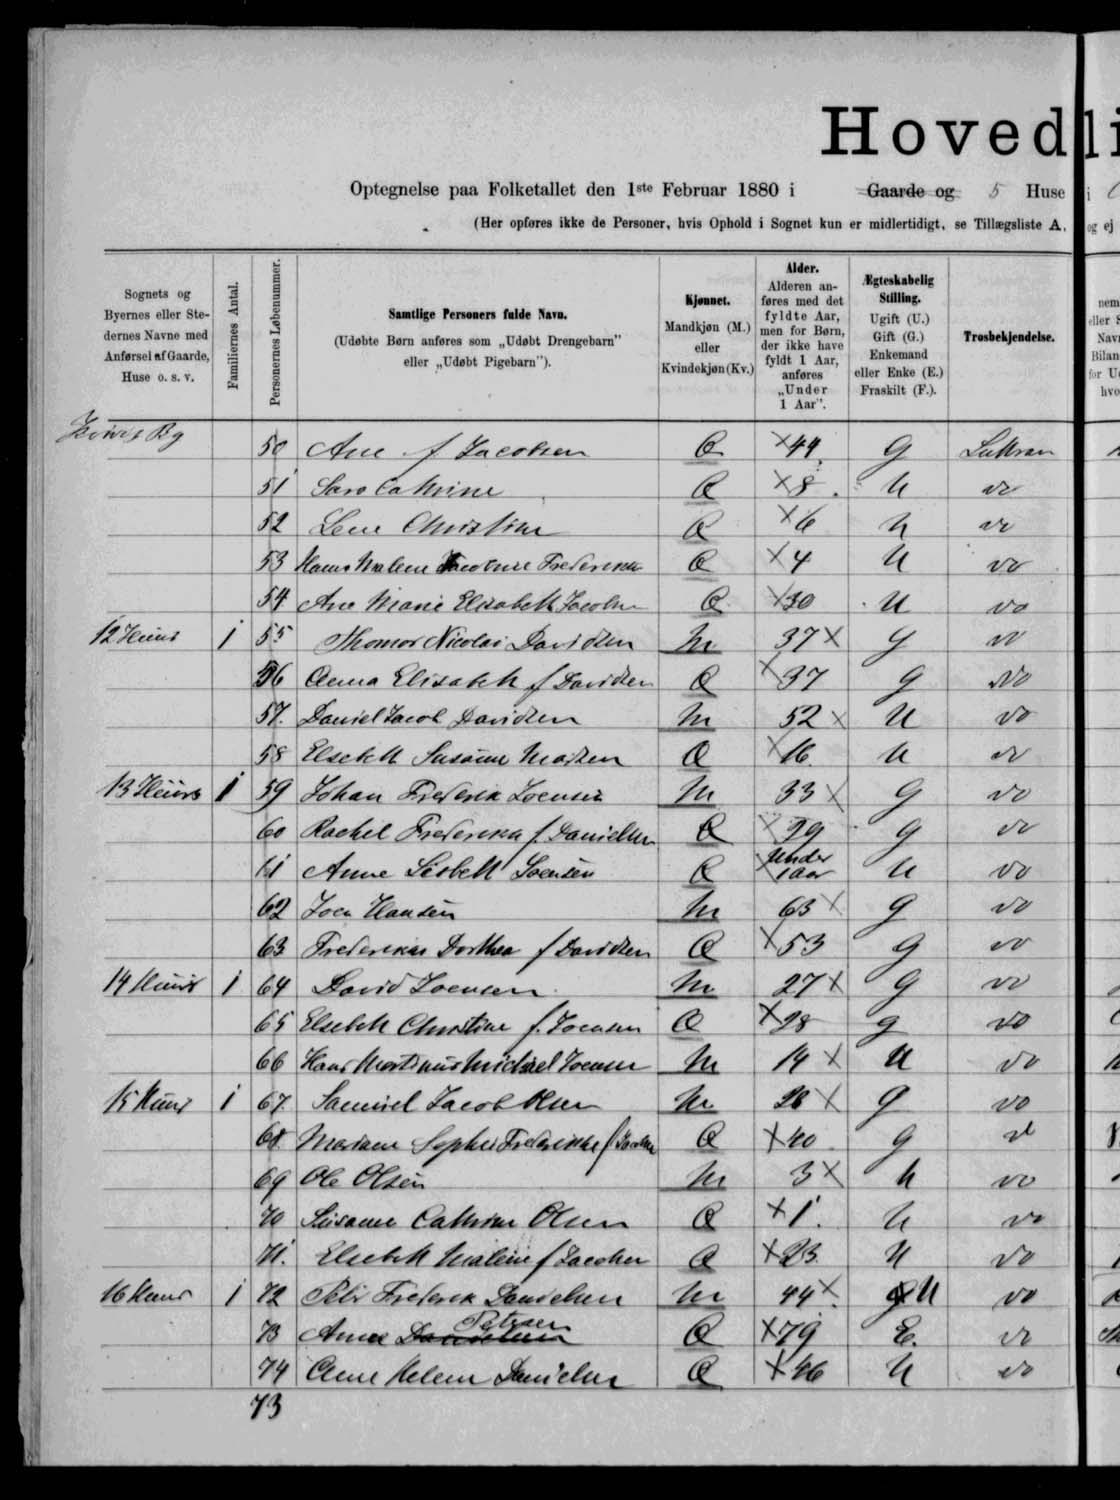 Hovedli
Optegnelse paa Folketallet den 1ste Februar 1880 i Gaarde og 5 Huse i
(Her opføres ikke de Personer, hvis Ophold i Sognet kun er midlertidigt, se Tillægsliste A, og ej
Sognets og Byernes eller Stedernes Navne med Anførsel af Gaarde, Huse o. s. v.
Familiernes Antal.
Personernes Løbenummer.
Samtlige Personers fulde Navn.
(Udøbte Børn anføres som „Udøbt Drengebarn" eller „Udøbt Pigebarn").
Kjønnet.
Mandkjøn (M.) eller Kvindekjøn (Kv.)
Alder.
Alderen anføres med det fyldte Aar, men for Børn, der ikke have fyldt 1 Aar, anføres „Under 1 Aar".
Ægteskabelig Stilling.
Ugift (U.) Gift (G.) Enkemand eller Enke (E.) Fraskilt (F.).
Trosbekjendelse.
By 50 Ane f Jacobsen Q 44 G Luthran
51 Sara Cathrine Q 8 U do
52 Lene Christine Q 6 U do
53 Hans Malene Jacobine Frederikka Q 4 U do
54 Ane Marie Elisabeth Jacobsen Q 30 U do
12 Huus 1 55 Thomas Nicolai Davidsen M 37 G do
56 Anna Elisabeth f Davidsen Q 37 G do
57. Daniel Jacob Davidsen M 52 U do
58 Elsebeth Susanne Madsen Q 16 U do
13 Huus 1 59 Johan Frederik Joensen M 33 G do
60 Rachel Frederikka f. Danielsen Q 29 G do
61 Anne Lisbeth Joensen Q under 1 aar U do
62 Joen Hansen M 63 G do
63 Frederikka Dorthea f Davidsen Q 53 G do
14 Huus 1 64 David Joensen M 27 G do
65 Elsebeth Christine f. Joensen Q 28 G do
66 Hans Martinus Michael Joensen M 14 U do
15 Huus 1 67 Samuel Jacob Olsen M 28 G do
68 Mariane Sophie Frederikke f Jacobsen Q 40 G do
69 Ole Olsen M 3 U do
70 Susanne Cathrine Olsen Q 1. U do
71. Elsebeth Malene f Jacobsen Q 23. U do
16 Huus 1 72 Peter Frederik Danielsen M 44 U do
73 Anne Danielsen Petersen Q 79 E. do
74 Anne Helene Danielsen Q 46 U do
73